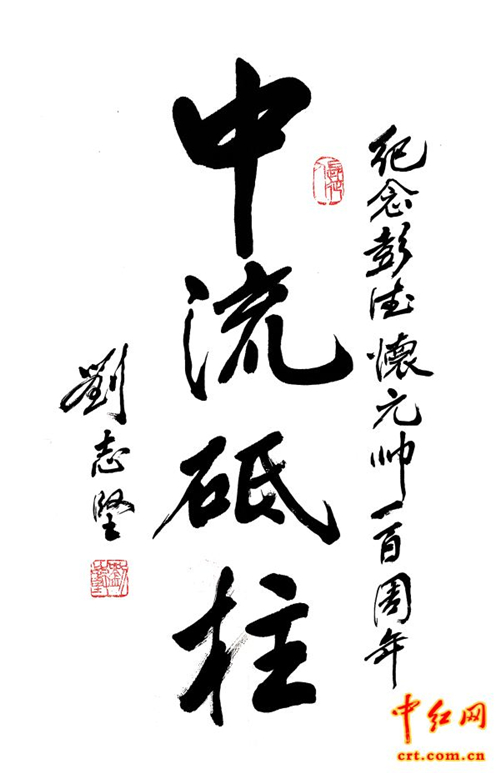 纪念彭德怀元帅一百周年
中流砥柱
劉志堅
中红网
crt.com.cn